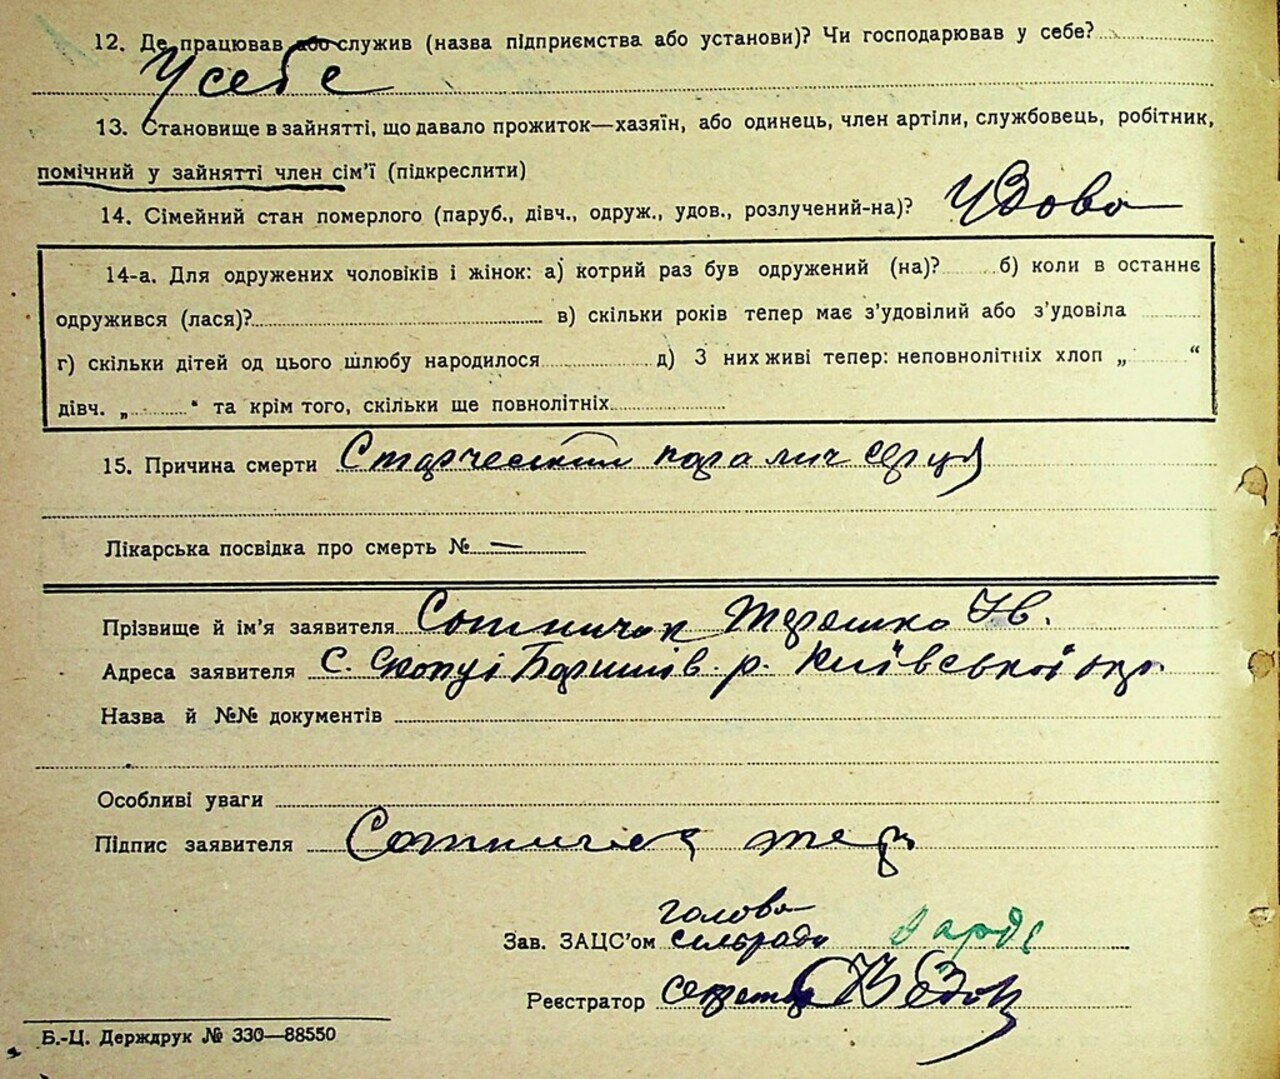 12. Де працював або служив (назва підприємства або установи)? Чи господарював у себе?
У себе
13. Становище в зайнятті, що давало прожиток—хазяїн, або одинець, член артіли, службовець, робітник,
помічний у зайнятті член сім'ї (підкреслити)
14. Сімейний стан померлого (паруб., дівч., одруж., удов., розлучений-на)? Удова
14-а. Для одружених чоловіків і жінок: а) котрий раз був одружений (на)? б) коли в останнє
одружився (лася)? в) скільки років тепер має з'удовілий або з'удовіла
г) скільки дітей од цього шлюбу народилося д) З них живі тепер: неповнолітніх хлоп „ “
дівч. „ “ та крім того, скільки ще повнолітніх
15. Причина смерти Старческий паралич серця
Лікарська посвідка про смерть № —
Прізвище й ім'я заявителя Сотничок Терешко Ів.
Адреса заявителя с. Скопці Баришів. р. Київської окр.
Назва й №№ документів
Особливі уваги
Підпис заявителя Сотничок Тер
голова
Зав. ЗАЦС'ом сельради
Реєстратор секретар
Б.-Ц. Держдрук № 330—88550